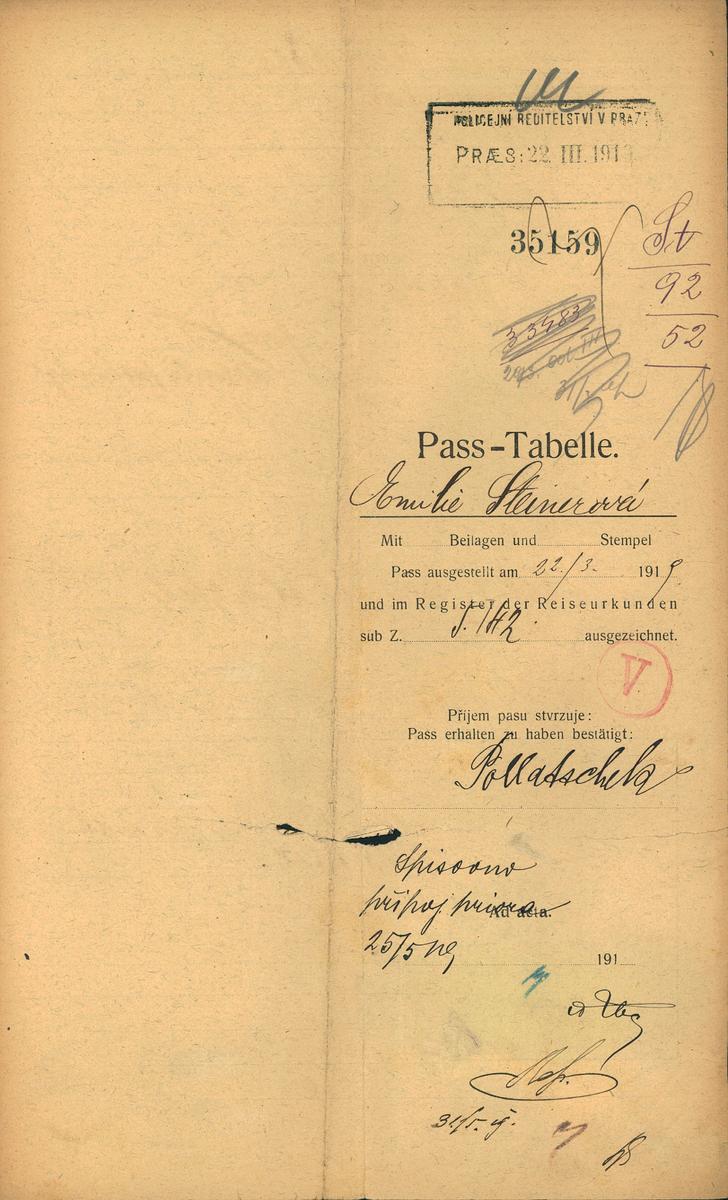 POLICEJNÍ ŘEDITELSTVÍ V PRAZE
PRÆS: 22. III. 191
35159
St
92
52
33483
Pass-Tabelle.
Emilie Steinerová
Mit Beilagen und Stempel
Pass ausgestellt am 22./3. 1919
und im Register der Reiseurkunden
sub Z. ausgezeichnet.
V
Přijem pasu stvrzuje:
Pass erhalten zu haben bestätigt:
Pollatschek
Ad acta.
25/5 19 191